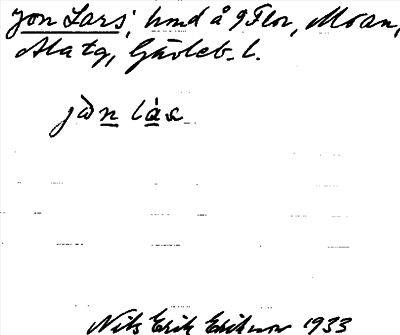 Jon Lars, hmd å 9 Flor, Moan,
Alfta, Gävleb. l.
jòn làs
Nils Erik Eriksson 1933